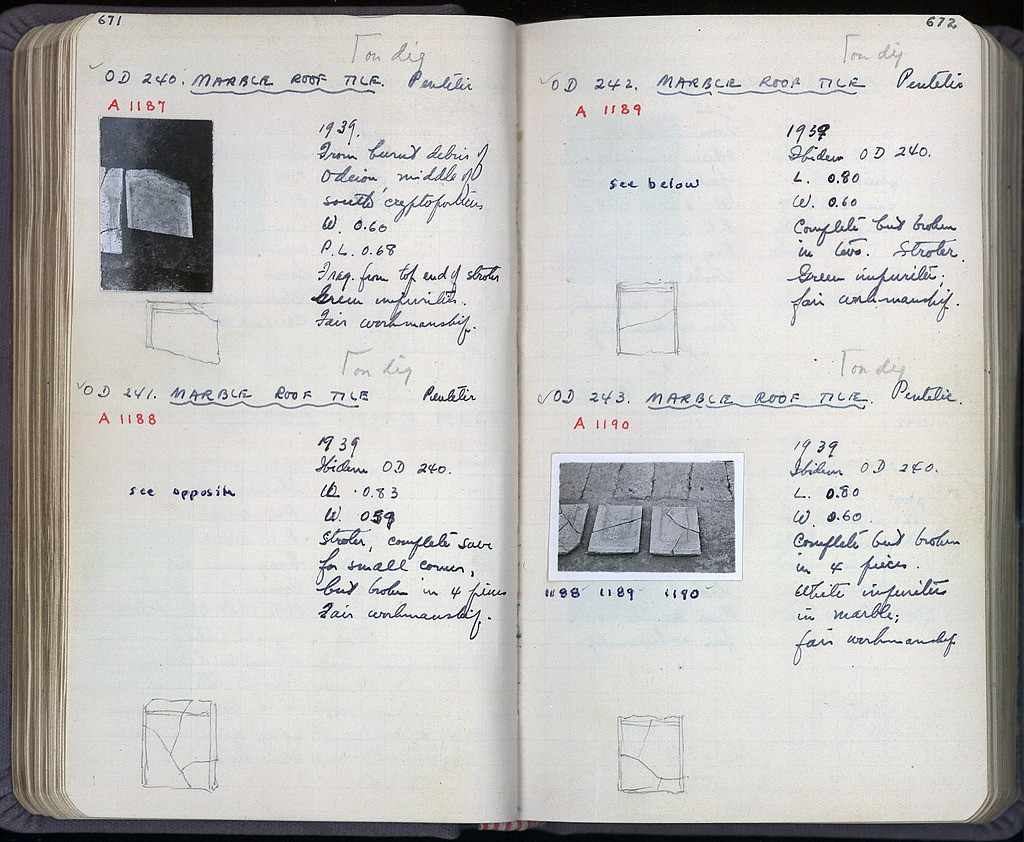 671
Ton dig
OD 240. MARBLE ROOF TILE. Pentelic
A 1187
1939.
From burnt debris of
Odeion, middle of
south cryptoporticus
W. 0.60
P.L. 0.68
Frag. from top end of stroter
Green impurities.
Fair workmanship.
Ton dig
OD 241. MARBLE ROOF TILE Pentelic
A 1188
1939
Ibidem OD 240.
see opposite
L. 0.83
W. 0.59
Stroter, complete save
for small corner,
but broken in 4 pieces
Fair workmanship.
672
Ton dig
OD 242. MARBLE ROOF TILE Pentelic
A 1189
1939
Ibidem OD 240.
see below
L. 0.80
W. 0.60
Complete but broken
in two. Stroter.
Green impurities;
fair workmanship.
Ton dig
OD 243. MARBLE ROOF TILE. Pentelic.
A 1190
1939
Ibidem OD 240.
L. 0.80
W. 0.60
Complete but broken
in 4 pieces.
White impurities
in marble;
fair workmanship
1188 1189 1190